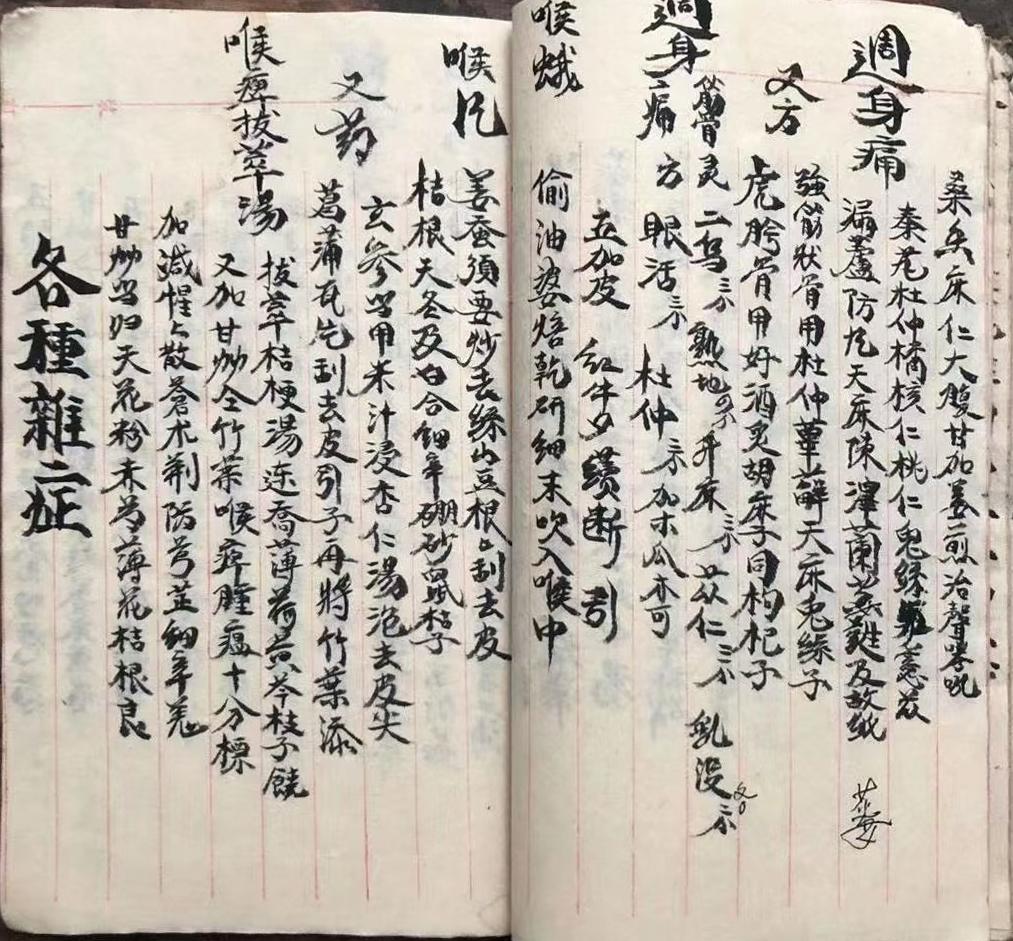 桑 麻仁大腹甘加姜煎治聲哮吼
週身痛
秦艽杜仲橘核仁桃仁鬼 薏苡
漏蘆防风天麻陳澤蘭 及故紙
強筋状骨用杜仲萆薢天麻兎絲子
又方
虎胯骨用好酒 胡麻子同枸杞子
週身筋骨痛
灵二乌 熟地 升麻 苡仁 乳没
方眼活 杜仲 加木瓜亦可
五加皮 紅牛夕 續断 引
喉蛾
偷油婆焙乾研細末吹入喉中
喉风
姜蚕須要炒去絲山豆根上刮去皮
桔根天冬及白合細辛硼砂鼠桔子
玄参当用米汁浸杏仁湯泡去皮尖
又药
葛蒲瓦先刮去皮引子再將竹葉添
喉痺拔萃湯
拔萃桔梗湯连喬薄荷黄芩桂子饒
又加甘炒仝竹葉喉痺腫瘟十分標
加減惺惺散蒼术荆防芎芷細辛羌
甘炒当归天花粉赤芍薄花桔根良
各種雜症